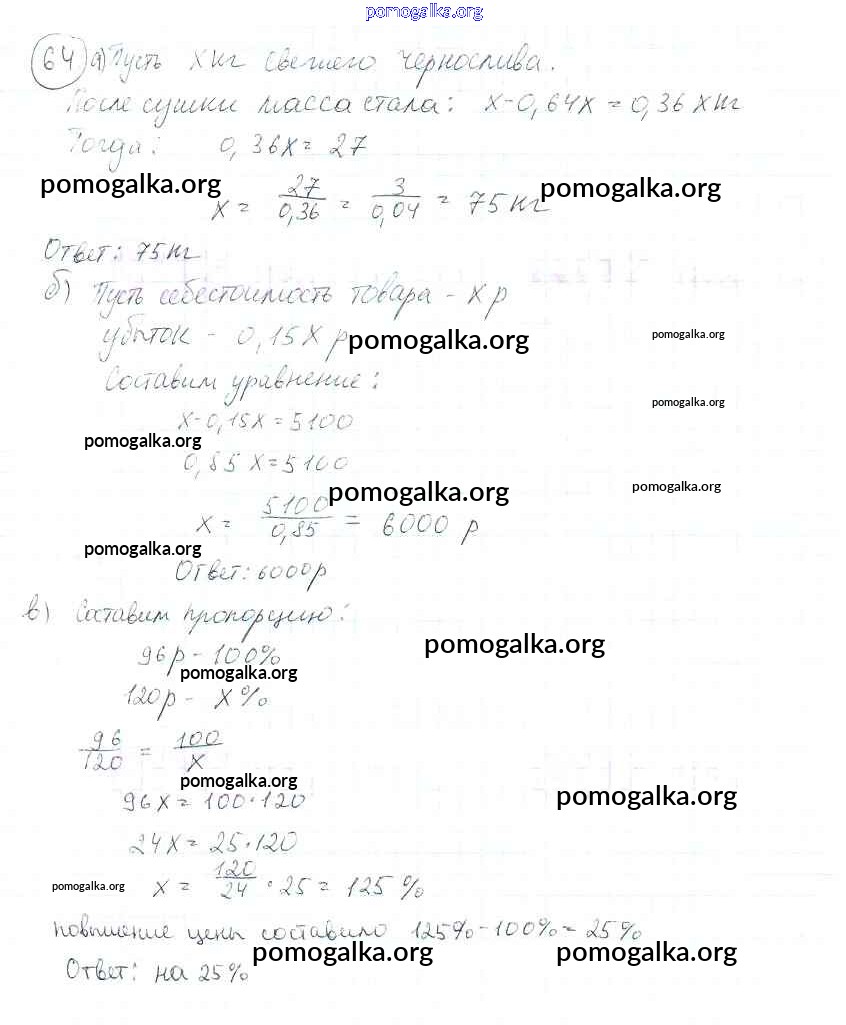 pomogalka.org
64 а) Пусть х кг свежего чернослива.
После сушки масса стала: х-0,64х = 0,36 х кг
Тогда: 0,36х = 27
pomogalka.org
х = 27/0,36 = 3/0,04 = 75 кг
pomogalka.org
Ответ: 75 кг
б) Пусть себестоимость товара - х р
убыток - 0,15 х р
pomogalka.org
pomogalka.org
Составим уравнение:
pomogalka.org
х-0,15х = 5100
pomogalka.org
0,85 х = 5100
pomogalka.org
pomogalka.org
х = 5100/0,85 = 6000 р
pomogalka.org
Ответ: 6000р
в) Составим пропорцию:
pomogalka.org
96р - 100%
pomogalka.org
120р - х %
96/120 = 100/х
pomogalka.org
96х = 100·120
pomogalka.org
24х = 25·120
pomogalka.org
х = 120/24 · 25 = 125 %
повышение цены составило 125% - 100% = 25%
pomogalka.org
pomogalka.org
Ответ: на 25%